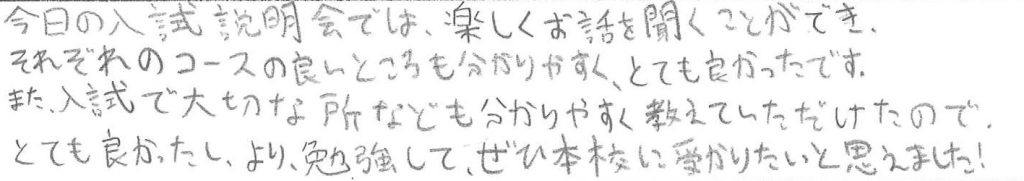 今日の入試説明会では、楽しくお話を聞くことができ、
それぞれのコースの良いところも分かりやすく、とても良かったです。
また、入試で大切な所なども分かりやすく教えていただけたので、
とても良かったし、より、勉強して、ぜひ本校に受かりたいと思えました!